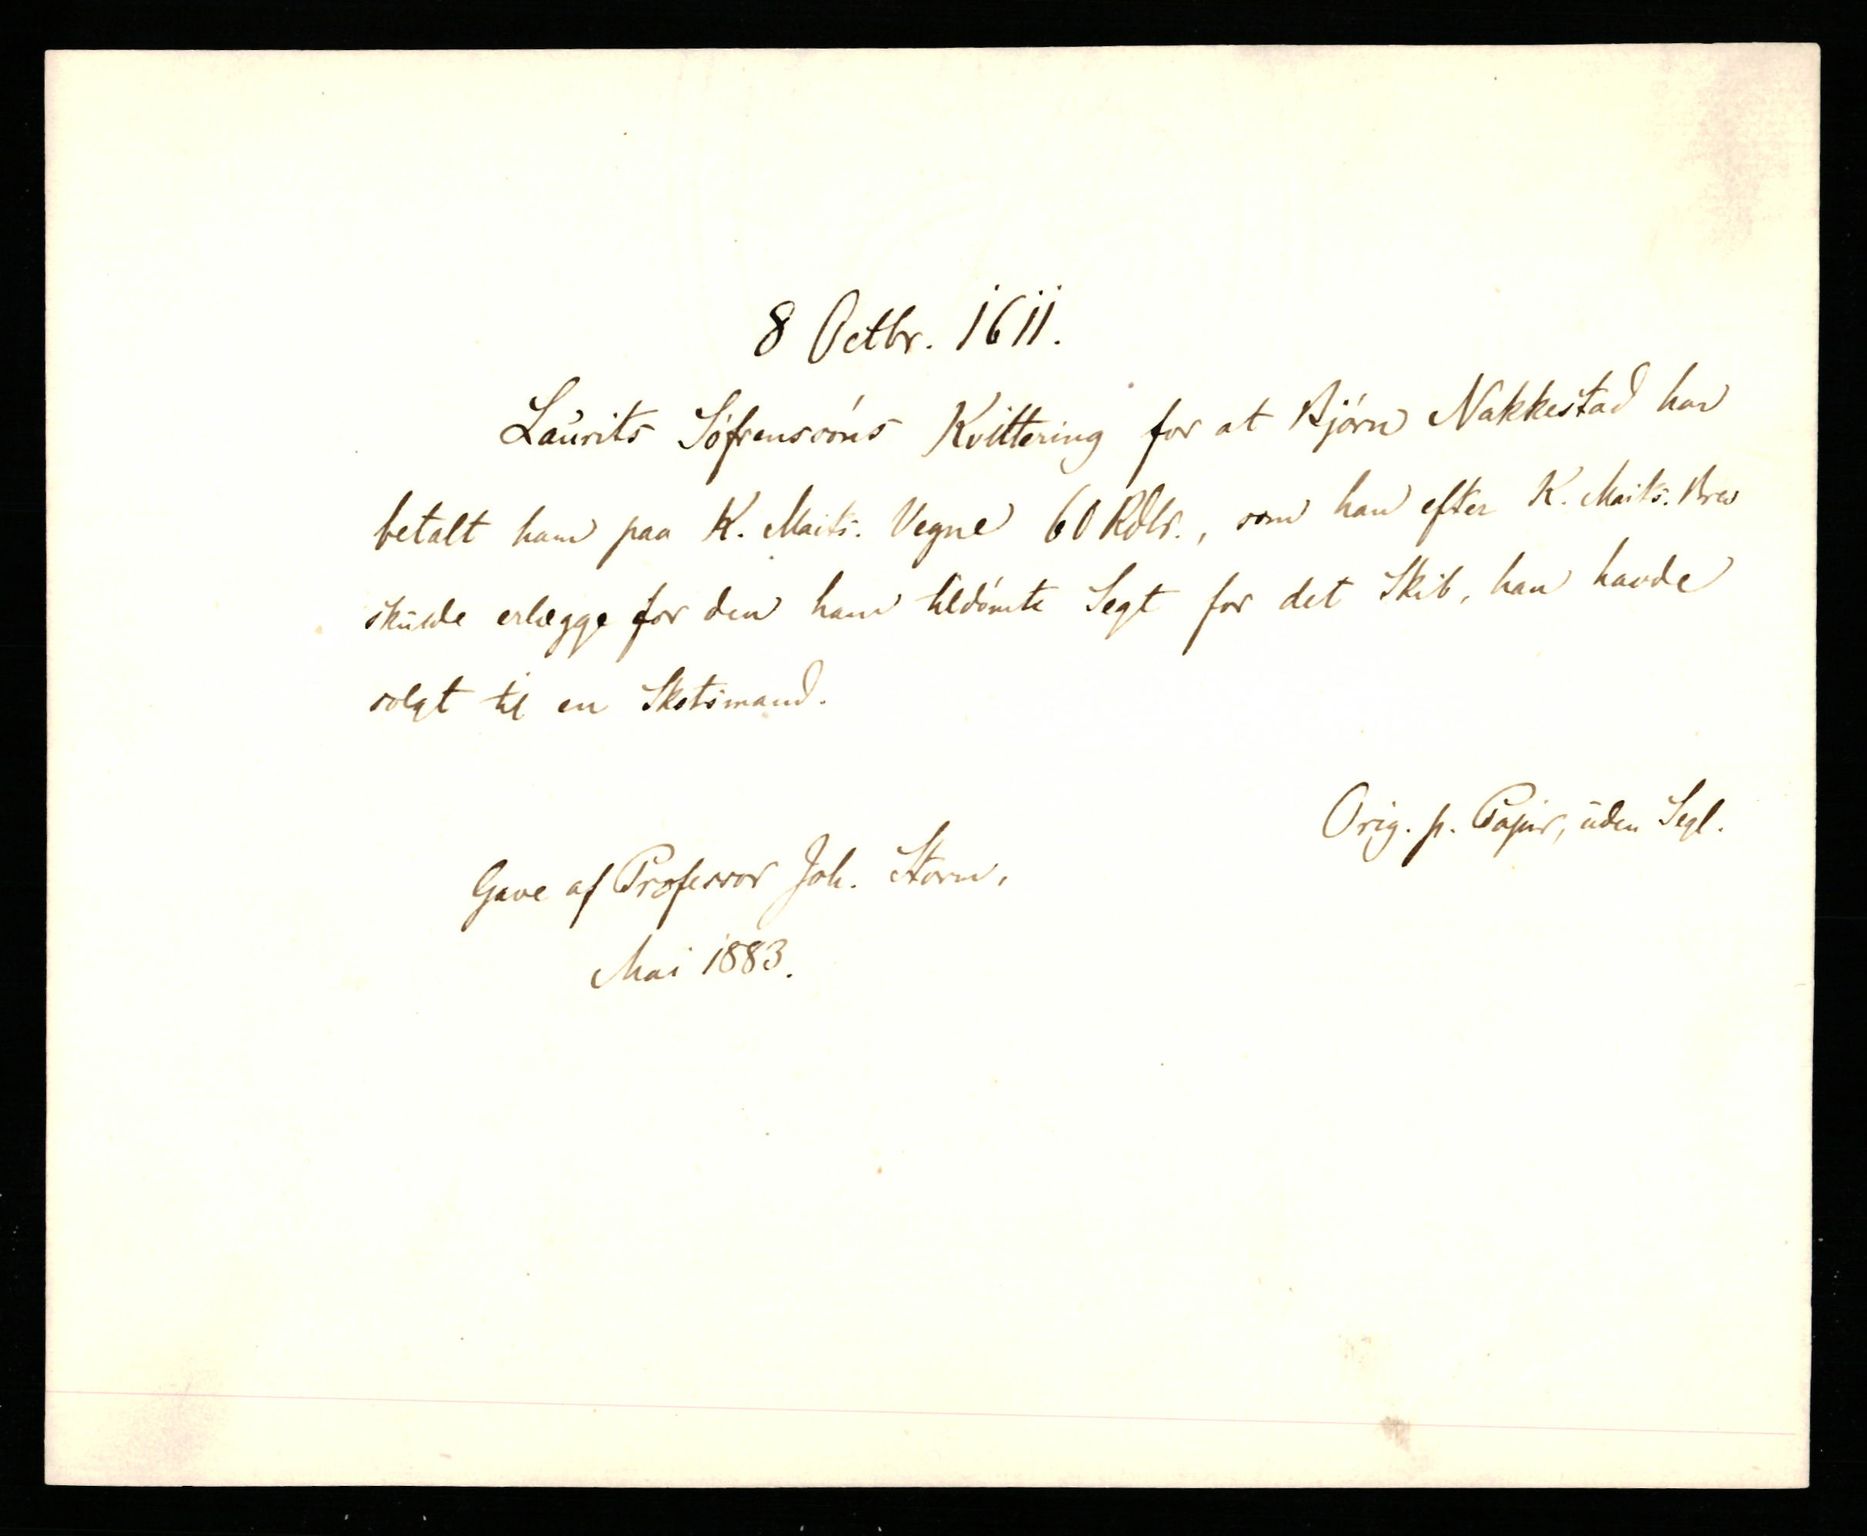 8 Octbr. 1611.
Laurits Söfrensöns Kvittering for at Björn Nakkestad har
betalt ham paa K. Maits. Vegne 60 Rdlr., som han efter K. Maits. Brev
skulde erlægge for den ham tildömte Segt for det Skib, han havde
solgt til en Skotsmand.
Orig. p. Papir, uden Segl.
Gave af Professor Joh. Storm,
Mai 1883.